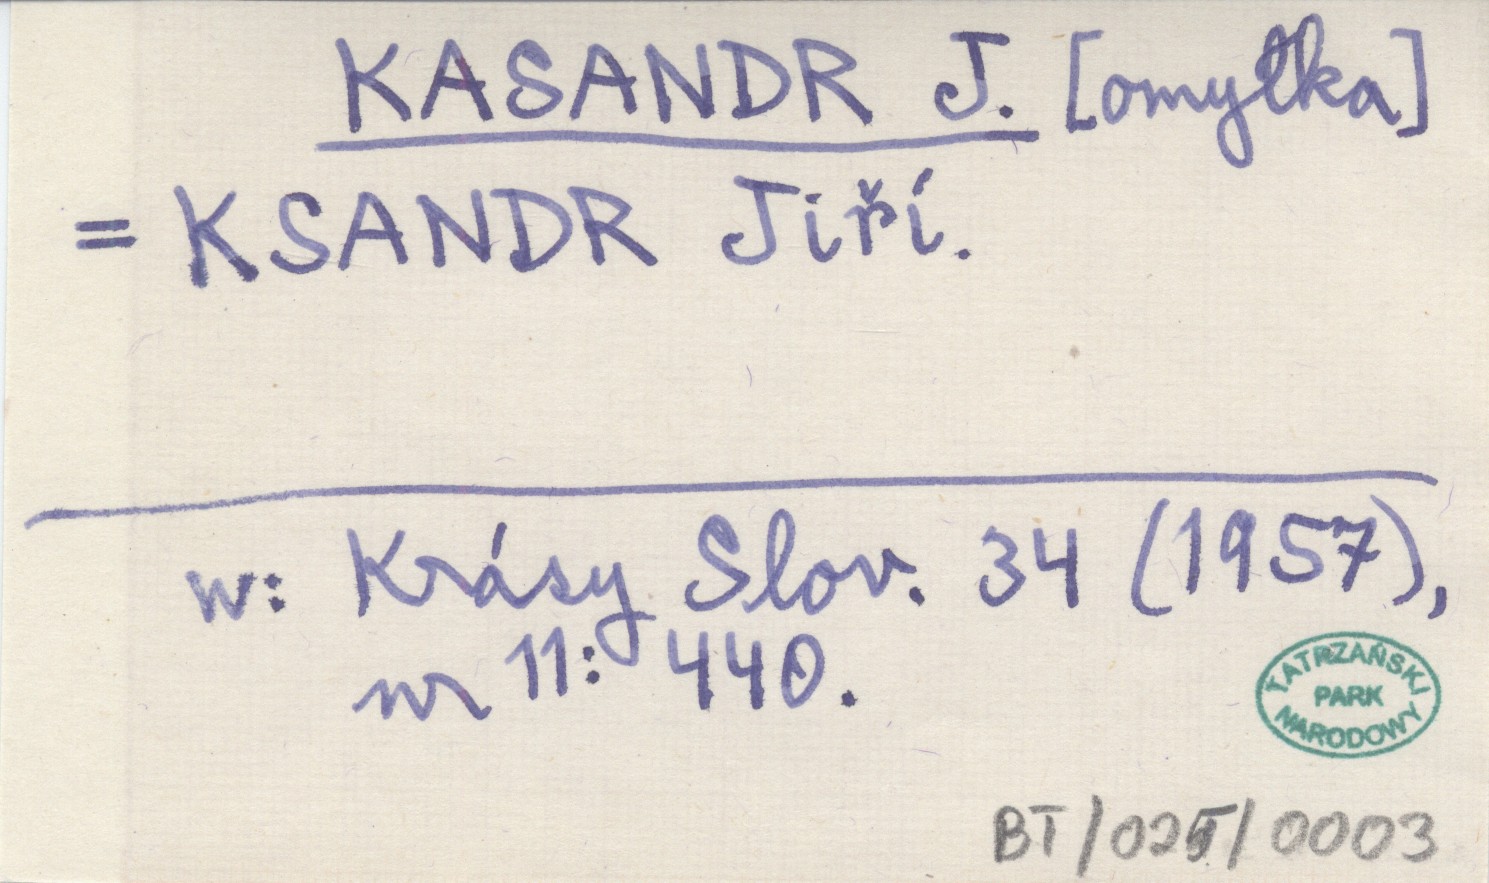 KASANDR J. [omyłka]
= KSANDR Jiří.
w: Krásy Slov. 34 (1957),
nr 11: 440.
TATRZAŃSKI
PARK
NARODOWY
BT/025/0003